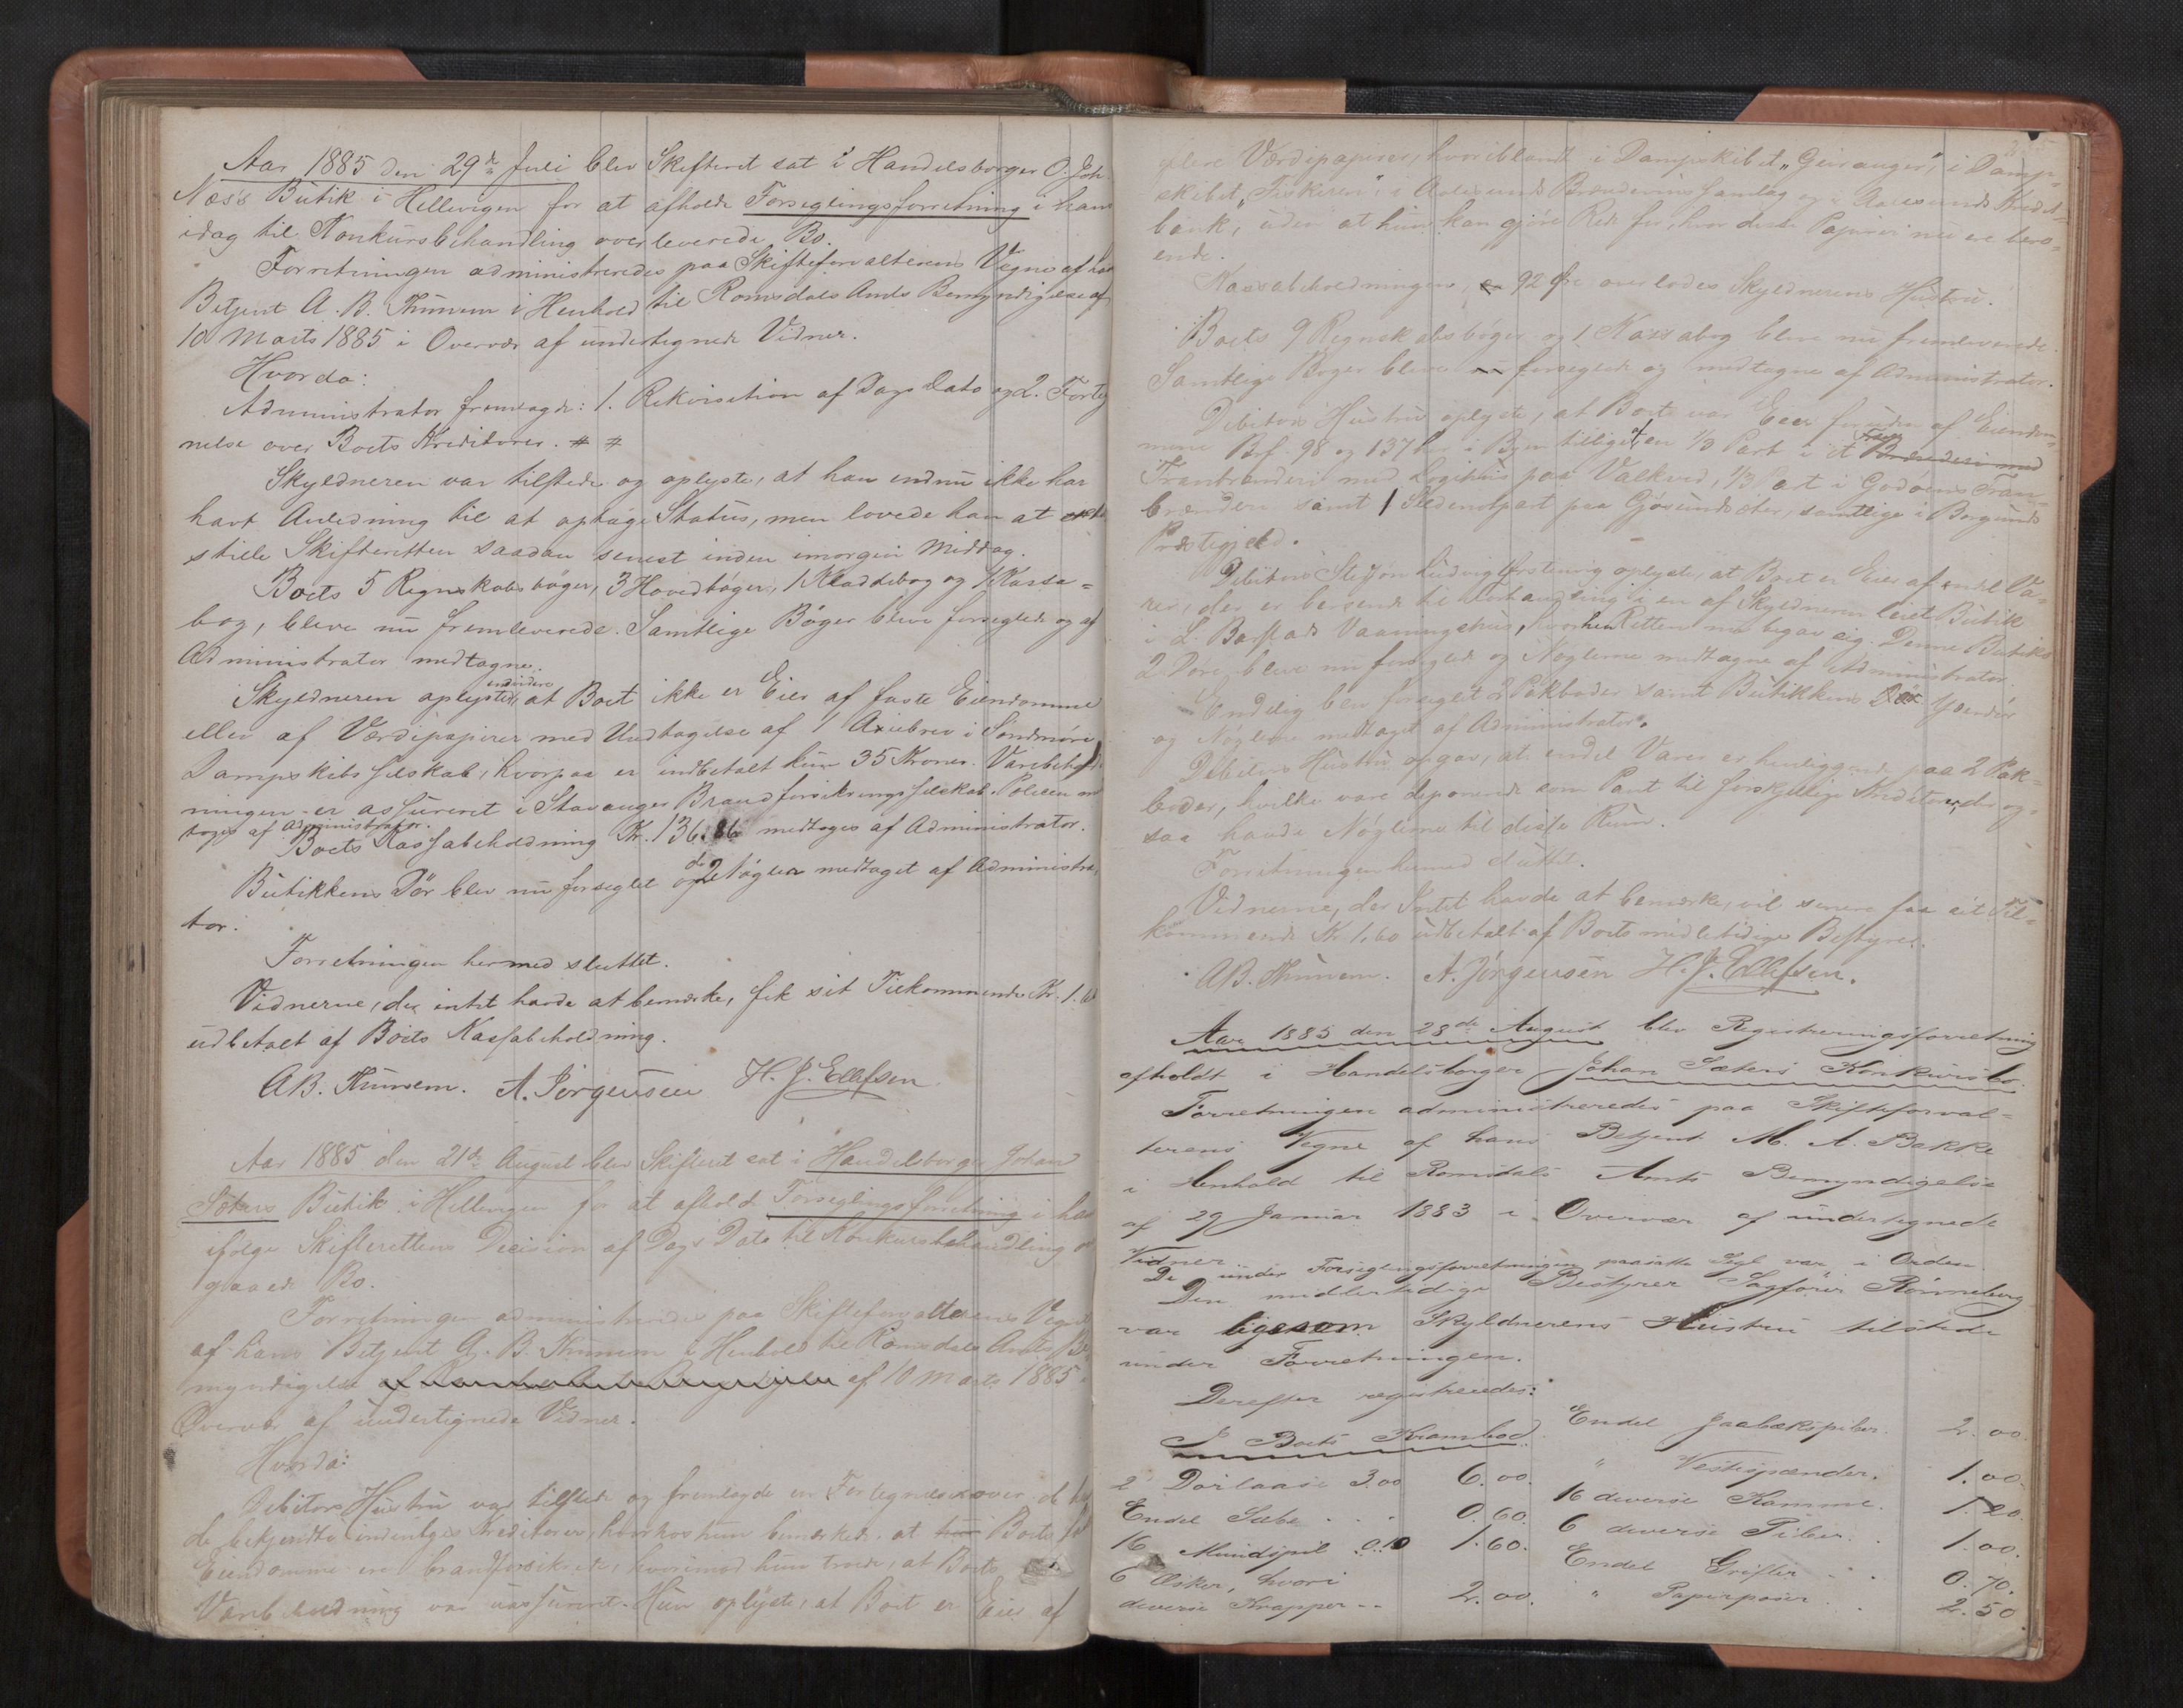 Aar 1885 den 29de Juli blev Skifteret sat i Handelsborger O. Joh
Næss Butik i Hellevigen for at afholde Forseglingsforretning i hans
idag til Konkursbehandling overleverede Bo.
Forretningen administreredes paa Skifteforvalterens Vegne af hans
Betjent A. B. Thunem i Henhold til Romsdals Amts Bemyndigelse af
10 Marts 1885 i Overvær af undertegnede Vidner.
Hvorda:
Administrator fremlagde: 1. Rekvisition af Dags Dato og 2. Forteg
nelse over Boets Kreditorer. # #
Skyldneren var tilstede og oplyste, at han endnu ikke har
havt Anledning til at optage Status, men lovede han at
stille Skifteretten saadan senest inden imorgen Middag.
Boets 5 Regnskabsbøger, 3 Hovedbøger, 1 Kladdebog og 1 Kasse=
bog, bleve nu fremleverede. Samtlige Bøger bleve forseglede og af
Administrator medtagne.
Skyldneren oplyste endvidere, at Boet ikke er Eier af faste Eiendomme
eller af Værdipapirer med Undtagelse af 1 Axiebrev i Søndmøre
Dampskibsselskab, hvorpaa er indbetalt kun 35 Kroner. Varebehold
ningen er assureret i Stavanger Brandforsikringsselskab. Policen med
toges af Administrator.
Boets Kassabeholdning Kr. 136.86 medtoges af Administrator.
Butikkens Dör blev nu forseglet og de 2 Nøgler medtaget af Administra
tor.
Forretningen hermed sluttet.
Vidnerne, der intet havde at bemærke, fik sit Tilkommende Kr. 1.60
udbetalt af Boets Kassabeholdning.
AB. Thunem. A. Jørgensen H. J. Ellefsen
Aar 1885 den 21de August blev Skifteret sat i Handelsborger Johan
Sæters Butik i Hellevigen for at afholde Forseglingsforretning i hans
ifølge Skifterettens Decision af Dags Dato til Konkursbehandling over
gaaede Bo.
Forretningen administreredes paa Skifteforvalterens Vegne
af hans Betjent A. B. Thunem i Henhold til Romsdals Amts Be
myndigelse af 10 Marts 1885 i
Overvær af undertegnede Vidner.
Hvorda:
Debitors Hustru var tilstede og fremlagde en Fortegnelse over de hen
de bekjendte indenbyes Kreditorer, hvorhos hun bemærkede at Boets
Eiendomme er brandforsikrede, hvorimod hun troede, at Boets
Varebeholdning var uassureret. Hun oplyste, at Boet er Eier af
flere Værdipapirer, hvoriblandt i Dampskibet „Geiranger", i Damp=
skibet „Fiskeren", i Aalesunds Brændevinssamlag og i Aalesunds Kredit=
bank, uden at hun kan gjöre Rede for, hvor disse Papirer nu ere bero=
ende.
Kassabeholdningen, 92 Øre overlodes Skyldnerens Hustru.
Boets 9 Regnskabsbøger og 1 Kassabog bleve nu fremleverede.
Samtlige Bøger bleve forseglede og medtagne af Administrator.
Debitors Hustru oplyste, at Boet var Eier foruden af Eiendom=
mene Brf. 98 og 137 her i Byen tillige af en 1/3 Part i et
Tranbrænderi med Logihus paa Valkved, 1/3 Part i Godøens Tran=
brænderi samt 1 Part paa Gjøsundsæter, samtlige i Borgunds
Præstegjeld.
Debitors Ludvig oplyste, at Boet er Eier af endel Va=
rer, der er beroende til Forhandling i en af Skyldneren leiet Butik
i L. Barstads Vaaningshus, hvorhen Retten nu begav sig. Denne Butiks
2 Døre bleve nu forseglede og Nøglerne medtagne af Administrator.
Endelig blev forseglet 2 Pakboder samt Butikkens
og Nøglerne medtaget af Administrator.
Debitors Hustru opgav, at endel Varer er henliggende paa 2 Pak=
boder, hvilke vare deponerede som Pant til forskjellige Kreditorer, der og=
saa havde Nøglerne til disse Rum.
Forretningen hermed sluttet.
Vidnerne, der Intet havde at bemærke, vil senere faa sit Til=
kommende Kr 1.60 udbetalt af Boets midlertidige Bestyrer.
AB. Thunem. A. Jörgensen H. J. Ellefsen.
Aar 1885 den 28de August blev Registreringsforretning
afholdt i Handelsborger Johan Sæters Konkursbo.
Forretningen administreredes paa Skifteforval=
terens Vegne af hans Betjent M. A. Bakke
i Henhold til Romsdals Amts Bemyndigelse
af 29 Januar 1883 i Overvær af undertegnede
Vidner.
De under Forseglingsforretningen paasatte Segl var i Orden.
Den midlertidige Bestyrer Sagfører Rönneberg
var ligesom Skyldnerens Hustru tilstede
under Forretningen.
Derefter registreredes:
I Boets Krambod.
2 Dörlaase 3.00 6.00.
Endel Sæbe . . . 0.60.
16 Mundspil 0.10 1.60.
6 Æsker, hvori
diverse Knapper -- 2.00.
Endel 2.00.
" Vestespænder. 1.00.
16 diverse Kamme. 1.20.
6 diverse Piber. . 1.00.
Endel Grifler . . . 0.70.
" Papirposer . . 2.50